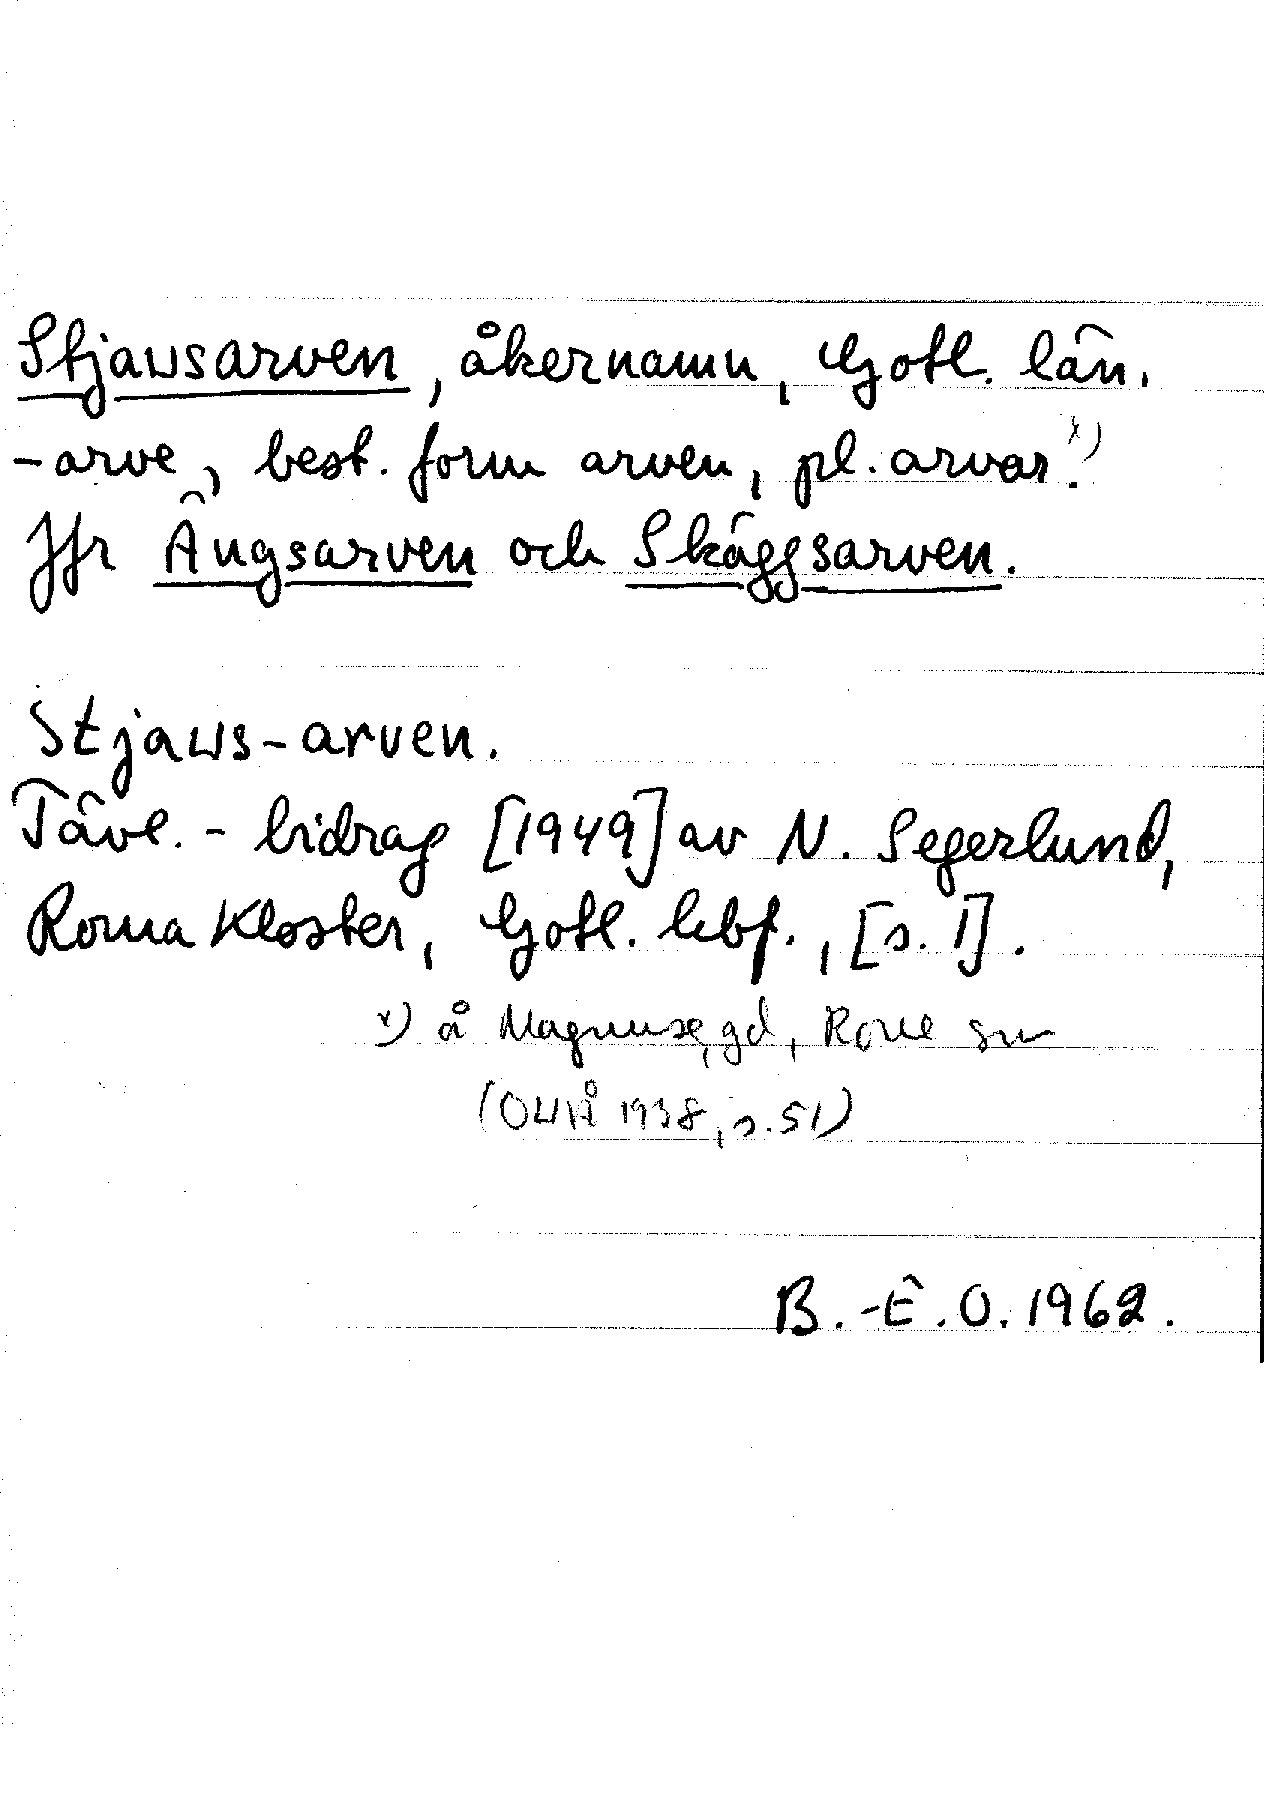 Stjausarven, åkernamn, Gotl. län.
-arve, best. form arven, pl. arvar. x)
Jfr Ängsarven och Skäggsarven.
Stjaus-arven.
Tävl. - bidrag [1949] av N. Segerlund,
Roma Kloster, Gotl. lbf., [s. 1].
x) å Magnuse, gd, Rone sn
(OUÅ 1938, s. 51)
B.-E. O. 1962.